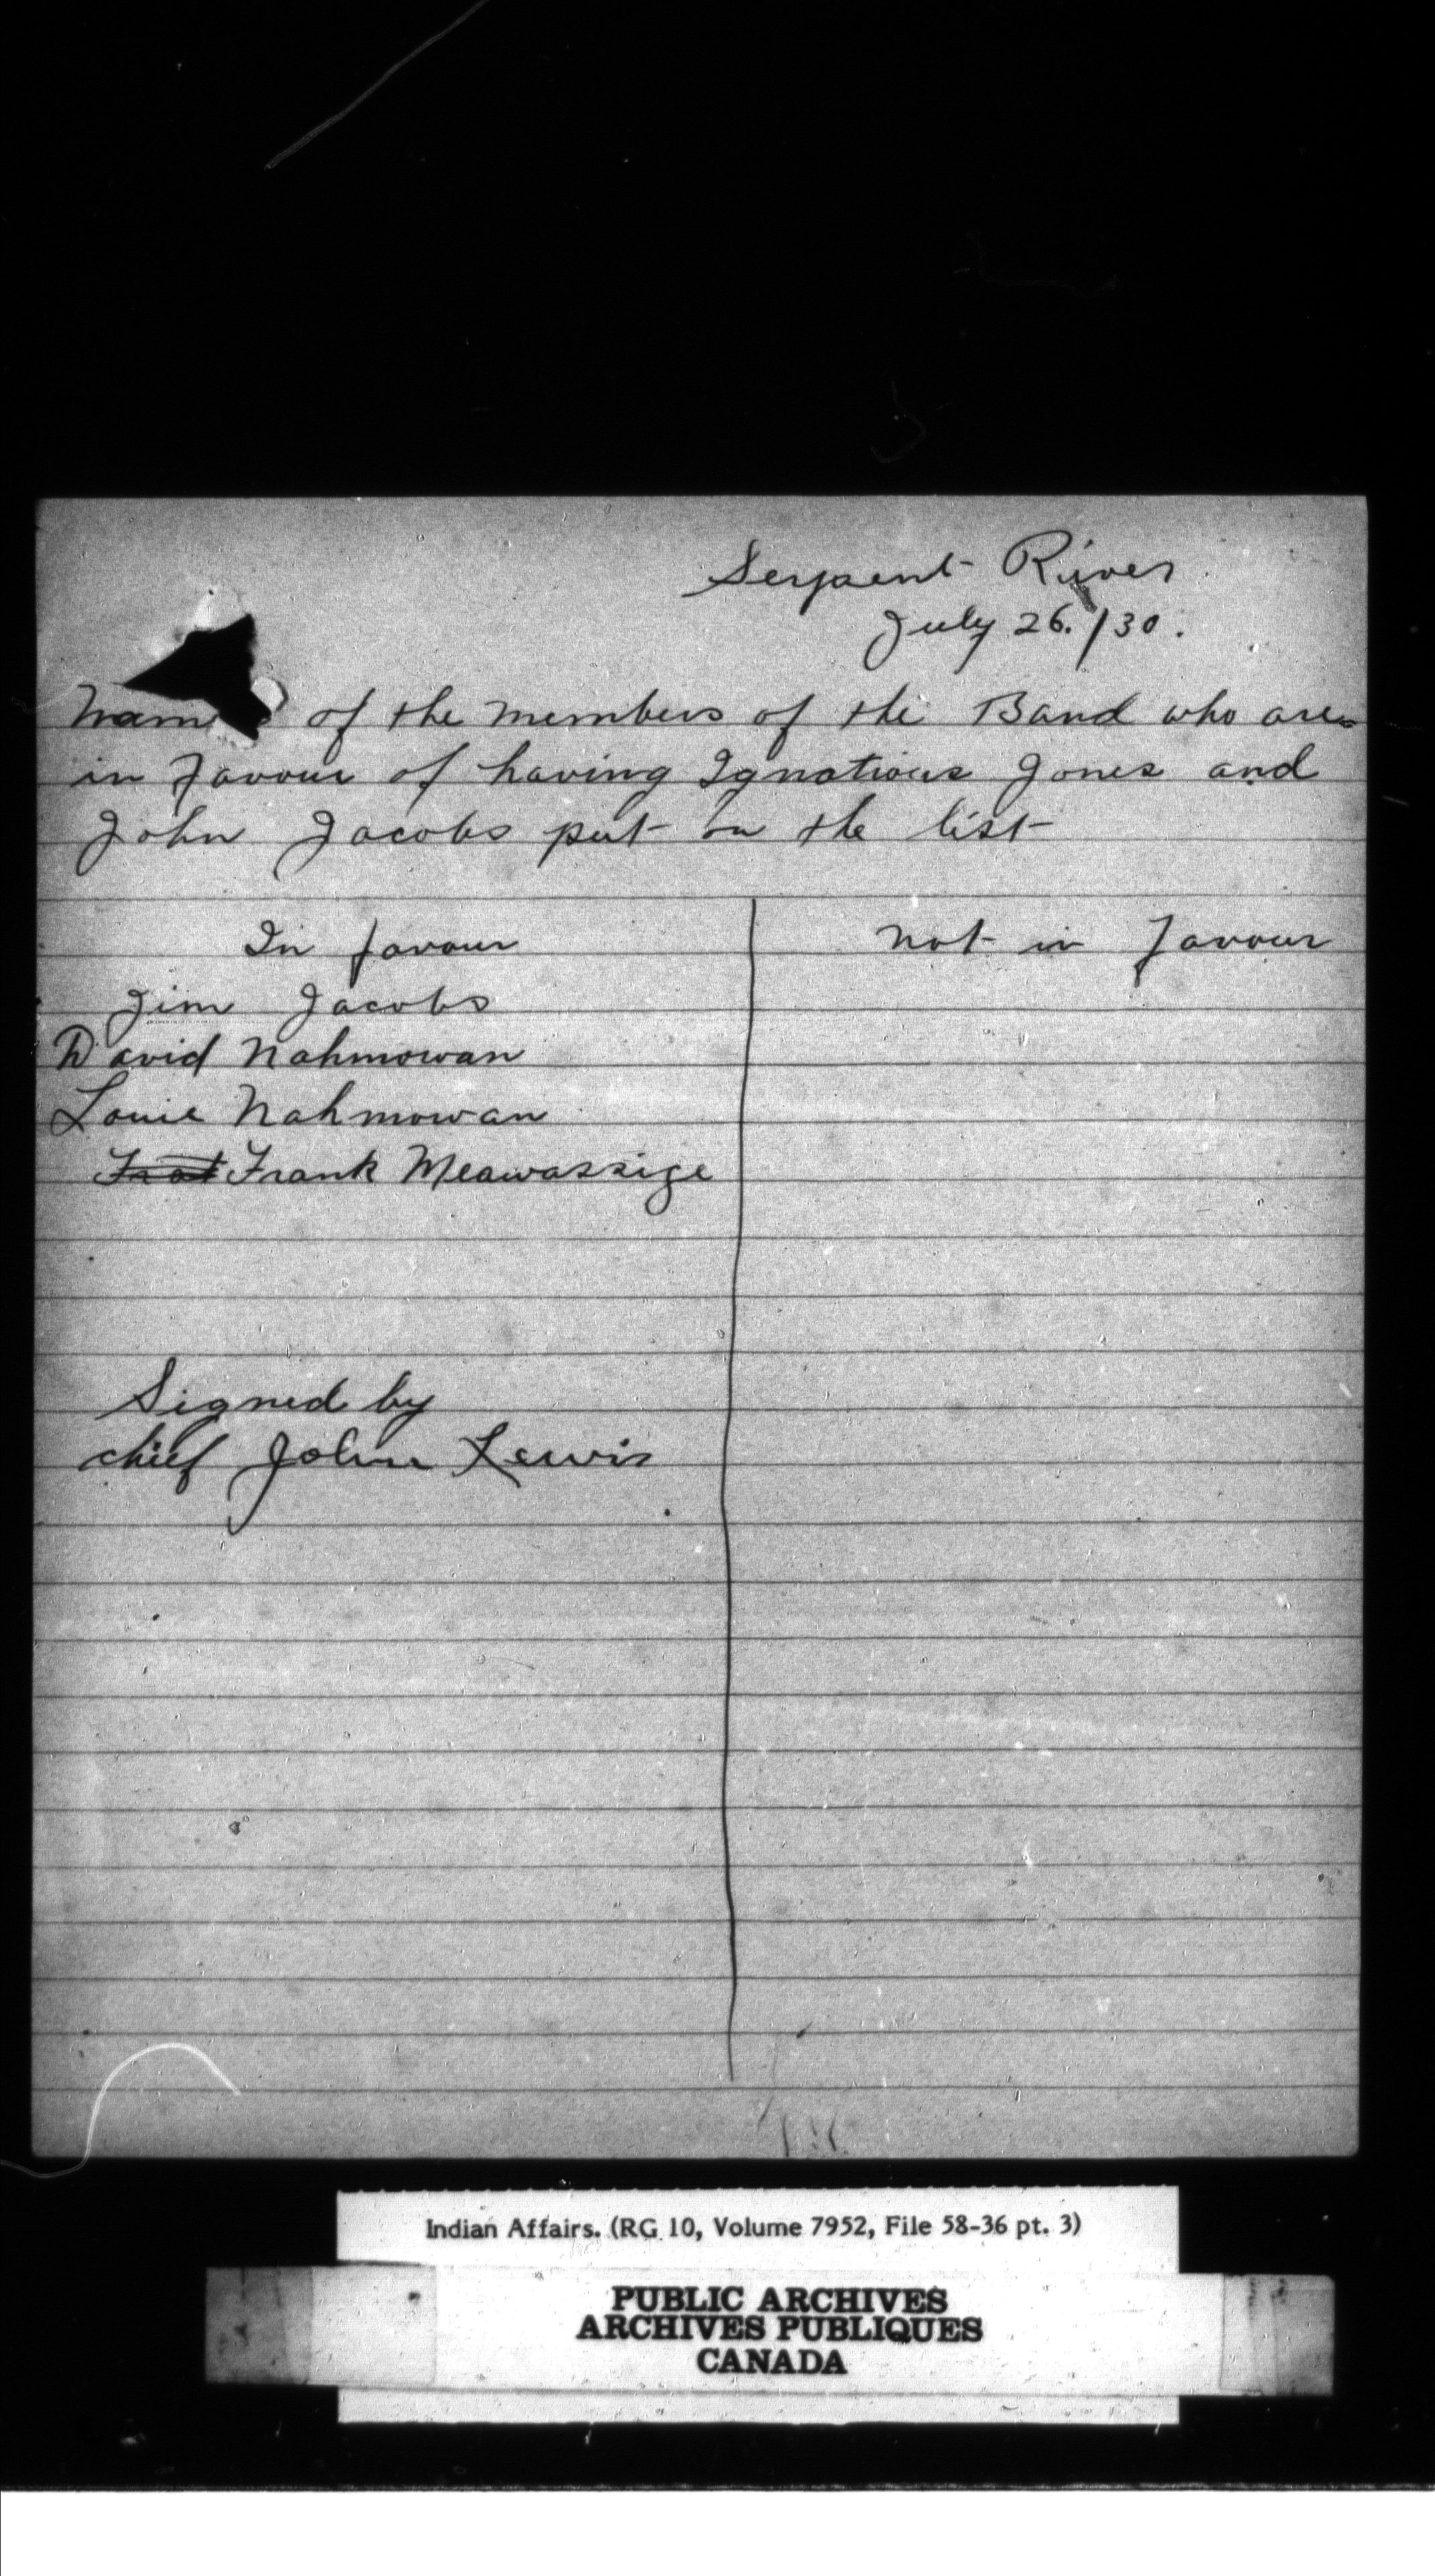 Serpent River
July 26./30.
Names of the members of the Band who are
in favour of having Ignatious Jones and
John Jacobs put on the list
In favour
not in favour
Jim Jacobs
David Nahmowan
Louie Nahmowan
Frank Meawassige
Signed by
chief John Lewis
Indian Affairs. (RG 10, Volume 7952, File 58-36 pt. 3)
PUBLIC ARCHIVES
ARCHIVES PUBLIQUES
CANADA